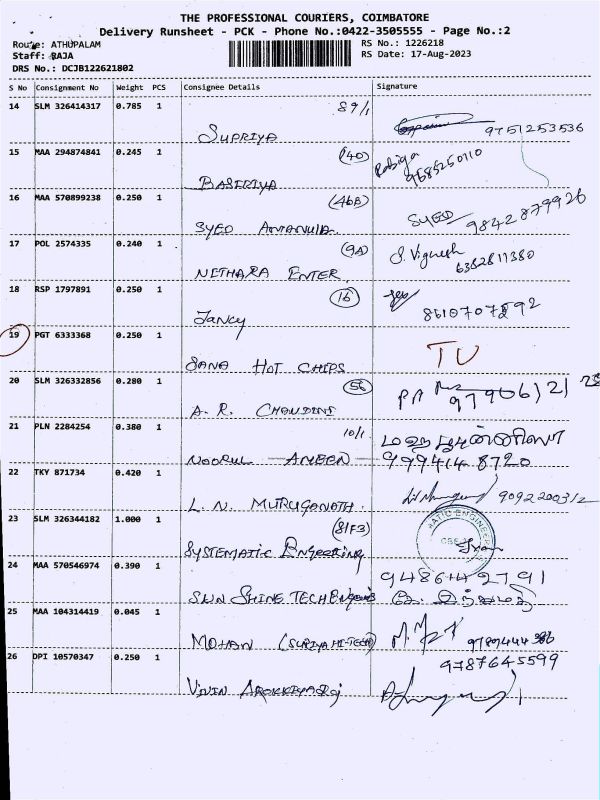 THE PROFESSIONAL COURIERS, COIMBATORE
Delivery Runsheet - PCK - Phone No.:0422-3505555 - Page No.:2
Route: ATHUPALAM
RS No.: 1226218
Staff: RAJA
RS Date: 17-Aug-2023
DRS No.: DCJB122621802
S No Consignment No Weight PCS Consignee Details Signature
14 SLM 326414317 0.785 1 89/1
SUPRIYA 9751253536
15 MAA 294874841 0.245 1 (40) Rabiya
9685250110
16 MAA 570899238 0.250 1 (46A)
SYED AMANULLA SYED 9842879926
17 POL 2574335 0.240 1 (9A) S. Vignesh
NITHARA ENTER 6382811380
18 RSP 1797891 0.250 1 (16)
Jancy
19 PGT 6333368 0.250 1
SANA HOT CHIPS
20 SLM 326332856 0.280 1 (56)
A. R.
21 PLN 2284254 0.380 1 10/1
NOORUL AMEEN 9994148720
22 TKY 871734 0.420 1
L. N. MURUGANATH. 9092200312
23 SLM 326344182 1.000 1 (81F3)
SYSTEMATIC Engeering
24 MAA 570546974 0.390 1 9486492791
SUN SHINE TECH
25 MAA 104314419 0.045 1
MOHAN (SURIYA HI-TECH)
26 DPI 10570347 0.250 1 9787645599